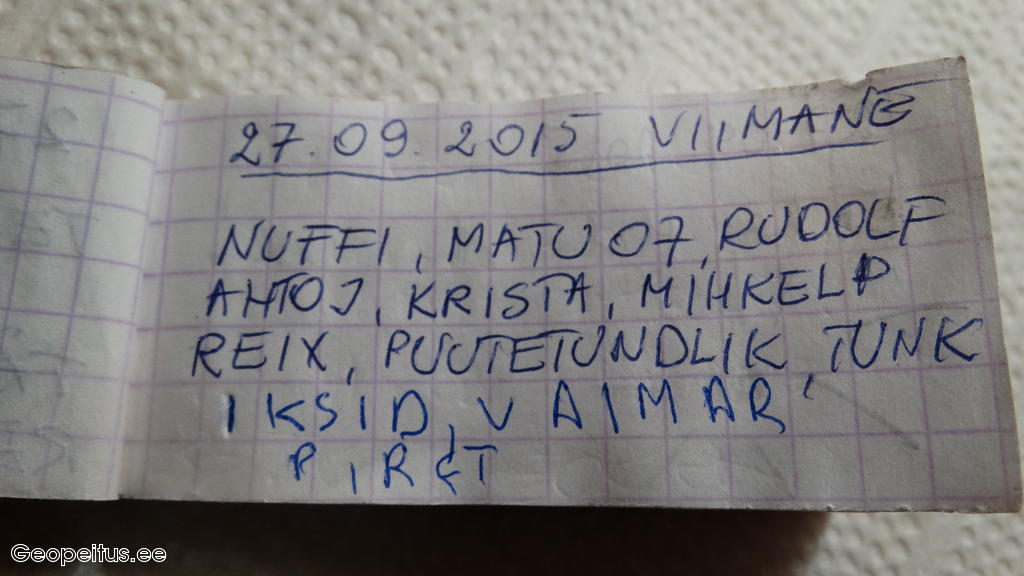 27.09.2015 VIIMANE
NUFFI, MATU 07, RUDOLF
AHTOJ, KRISTA, MIHKELP
REIX, PUUTETUNDLIK, TUNK
IKSID, VAIMAR,
PIRET
Geopeitus.ee